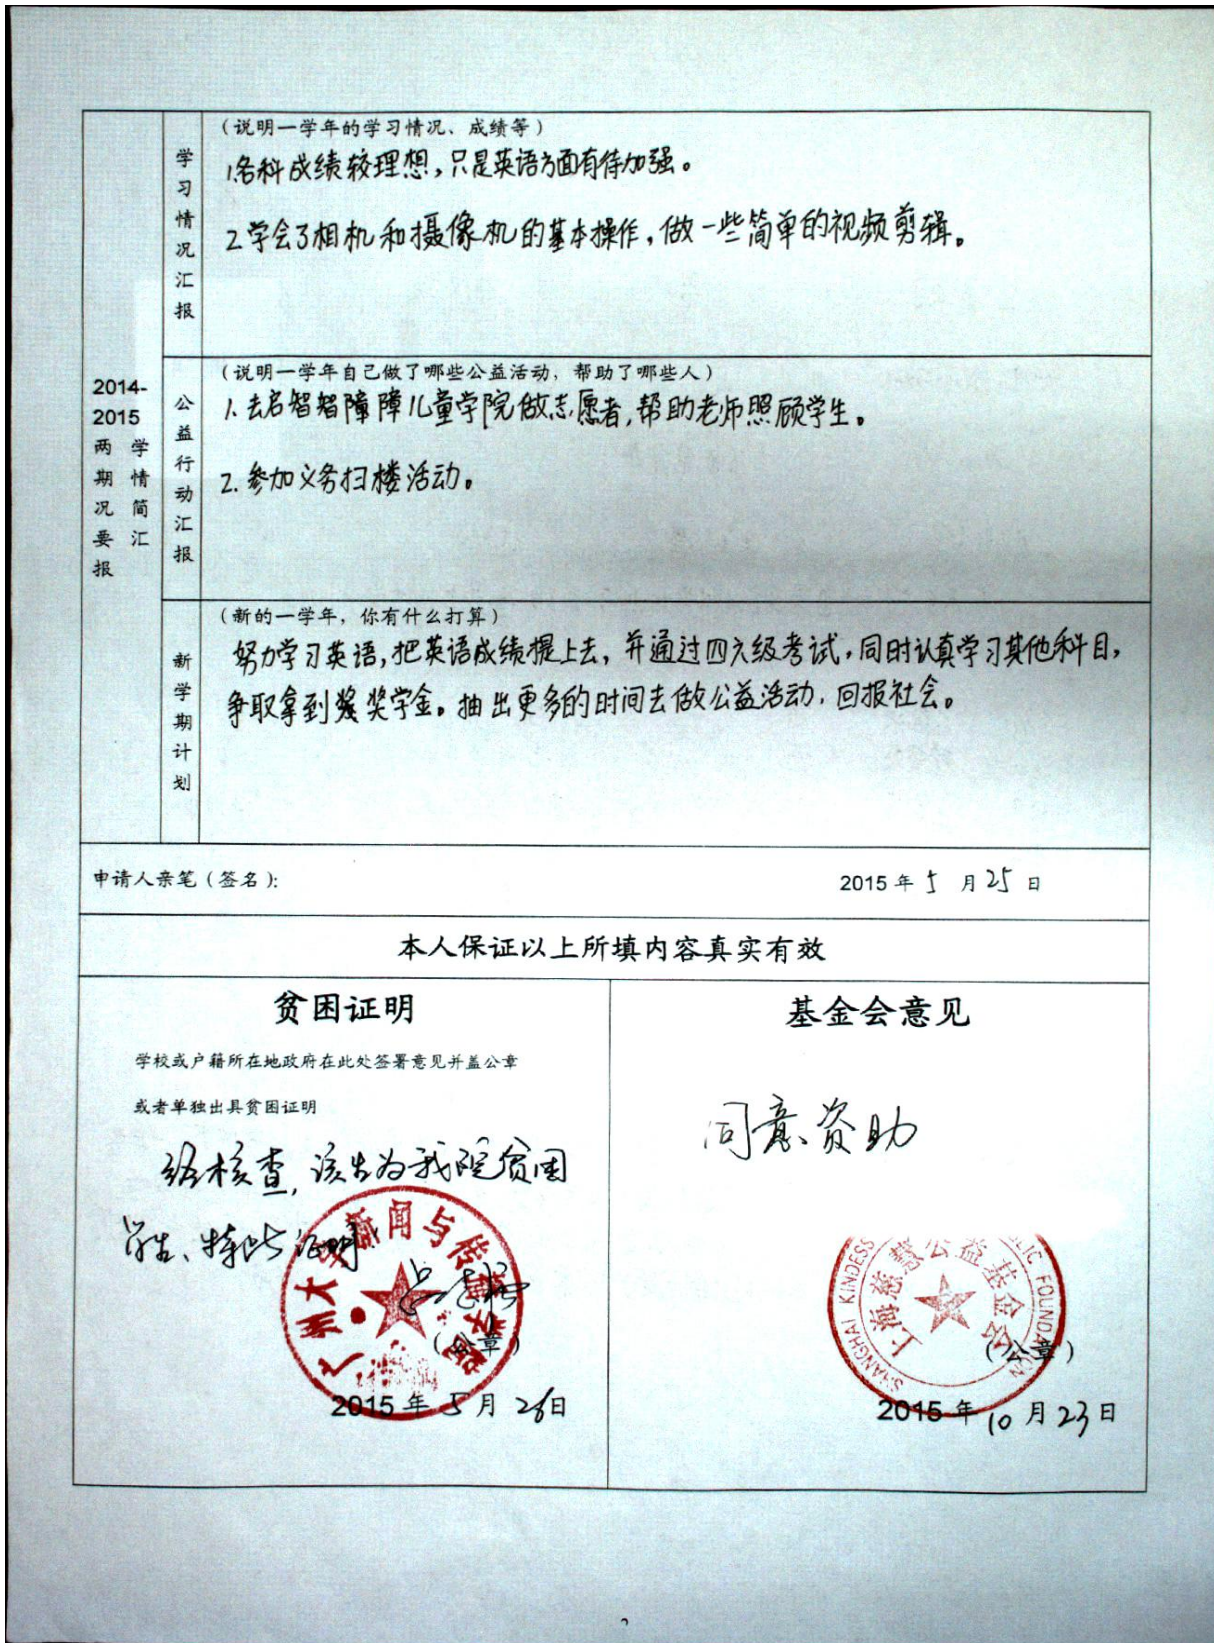 (说明一学年的学习情况、成绩等)
学习情况汇报
1.各科成绩较理想,只是英语方面有待加强。
2.学会了相机和摄像机的基本操作,做一些简单的视频剪辑。
2014-2015两学期情况简要汇报
(说明一学年自己做了哪些公益活动,帮助了哪些人)
公益行动汇报
1.去启智智障障儿童学院做志愿者,帮助老师照顾学生。
2.参加义务扫楼活动。
(新的一学年,你有什么打算)
新学期计划
努力学习英语,把英语成绩提上去,并通过四六级考试,同时认真学习其他科目,
争取拿到奖学金。抽出更多的时间去做公益活动,回报社会。
申请人亲笔(签名):
2015年5月25日
本人保证以上所填内容真实有效
贫困证明
学校或户籍所在地政府在此处签署意见并盖公章
或者单独出具贫困证明
经核查,该生为我院贫困
学生、特此证明.
广州大学新闻与传播学院
(公章)
2015年5月26日
基金会意见
同意资助
上海慈慧公益基金会
SHANGHAI KINDESS
LIC FOUNDATION
(公章)
2015年10月23日